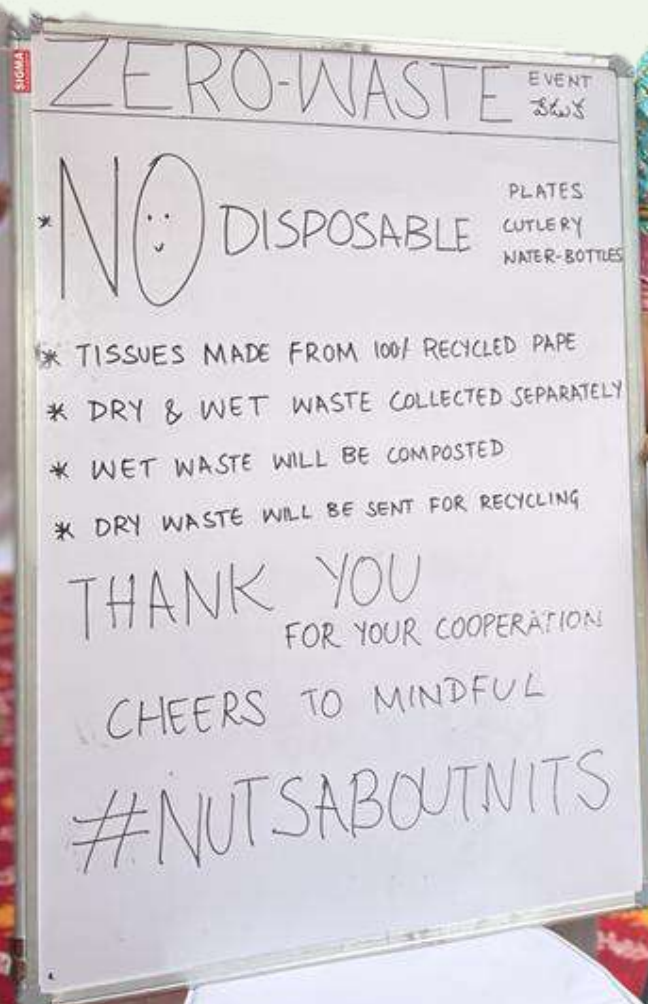 SIGMA
ZERO-WASTE EVENT
వేడుక
* NO DISPOSABLE PLATES
CUTLERY
WATER-BOTTLES
* TISSUES MADE FROM 100% RECYCLED PAPE
* DRY & WET WASTE COLLECTED SEPARATELY
* WET WASTE WILL BE COMPOSTED
* DRY WASTE WILL BE SENT FOR RECYCLING
THANK YOU
FOR YOUR COOPERATION
CHEERS TO MINDFUL
#NUTSABOUTNITS